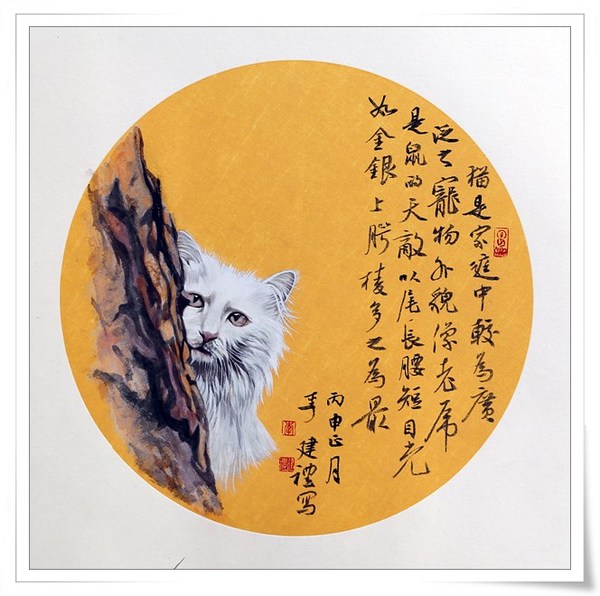 猫是家庭中較為廣
泛之寵物外貌像老虎
是鼠的天敵以尾長腰短目光
如金銀上腭棱多之為最
丙申正月
李建禮寫